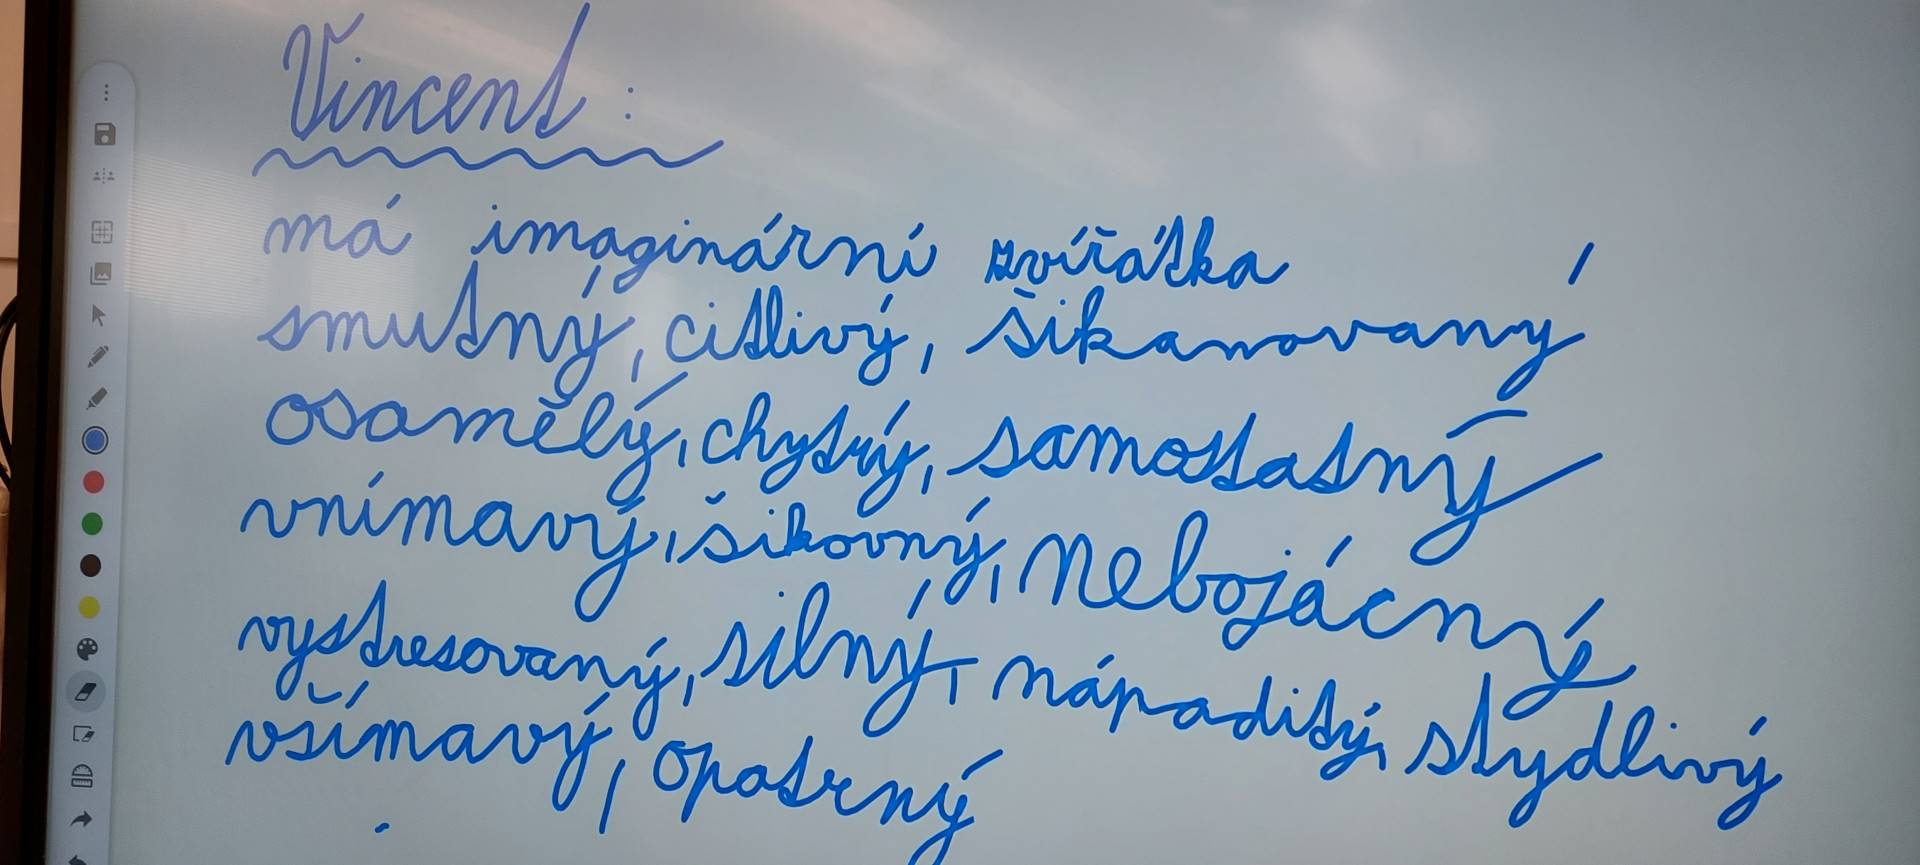 Vincent:
má imaginární zvířátka
smutný, citlivý, šikanovaný
osamělý, chytrý, samostatný
vnímavý, šikovný, nebojácný
vystresovaný, silný, nápaditý, stydlivý
všímavý, opatrný